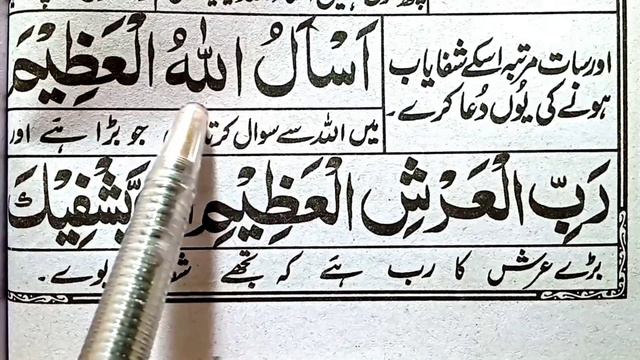 اور سات مرتبہ اسکے شفایاب
ہونے کی یوں دُعا کرے۔
اَسْاَلُ اللّٰهَ الْعَظِيْمَ
میں اللہ سے سوال کرتا جو بڑا ہے اور
رَبِّ الْعَرْشِ الْعَظِيْمِ يَّشْفِيْكَ
بڑے عرش کا رب ہے کہ تجھے ہووے۔